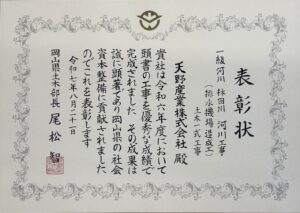 表彰状
一級河川 倉田川 河川工事
(排水機場造成工)
土木一式工事
天野産業株式会社 殿
貴社は令和六年度において
頭書の工事を優秀な成績で
完成されました その成果は
誠に顕著であり岡山県の社会
資本整備に貢献されました
のでこれを表彰します
令和七年八月二十一日
岡山県土木部長 尾松 智